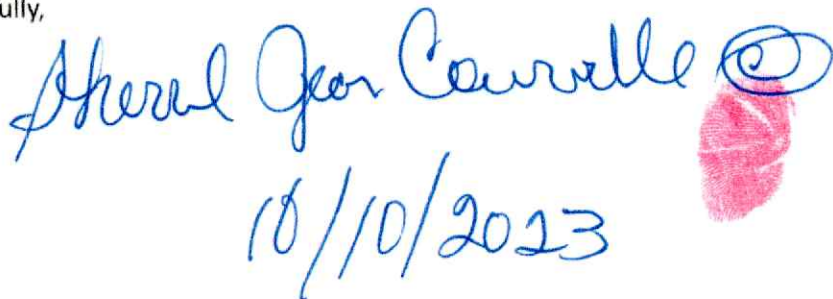 ully,
Sherrel Jean Courville ©
10/10/2023